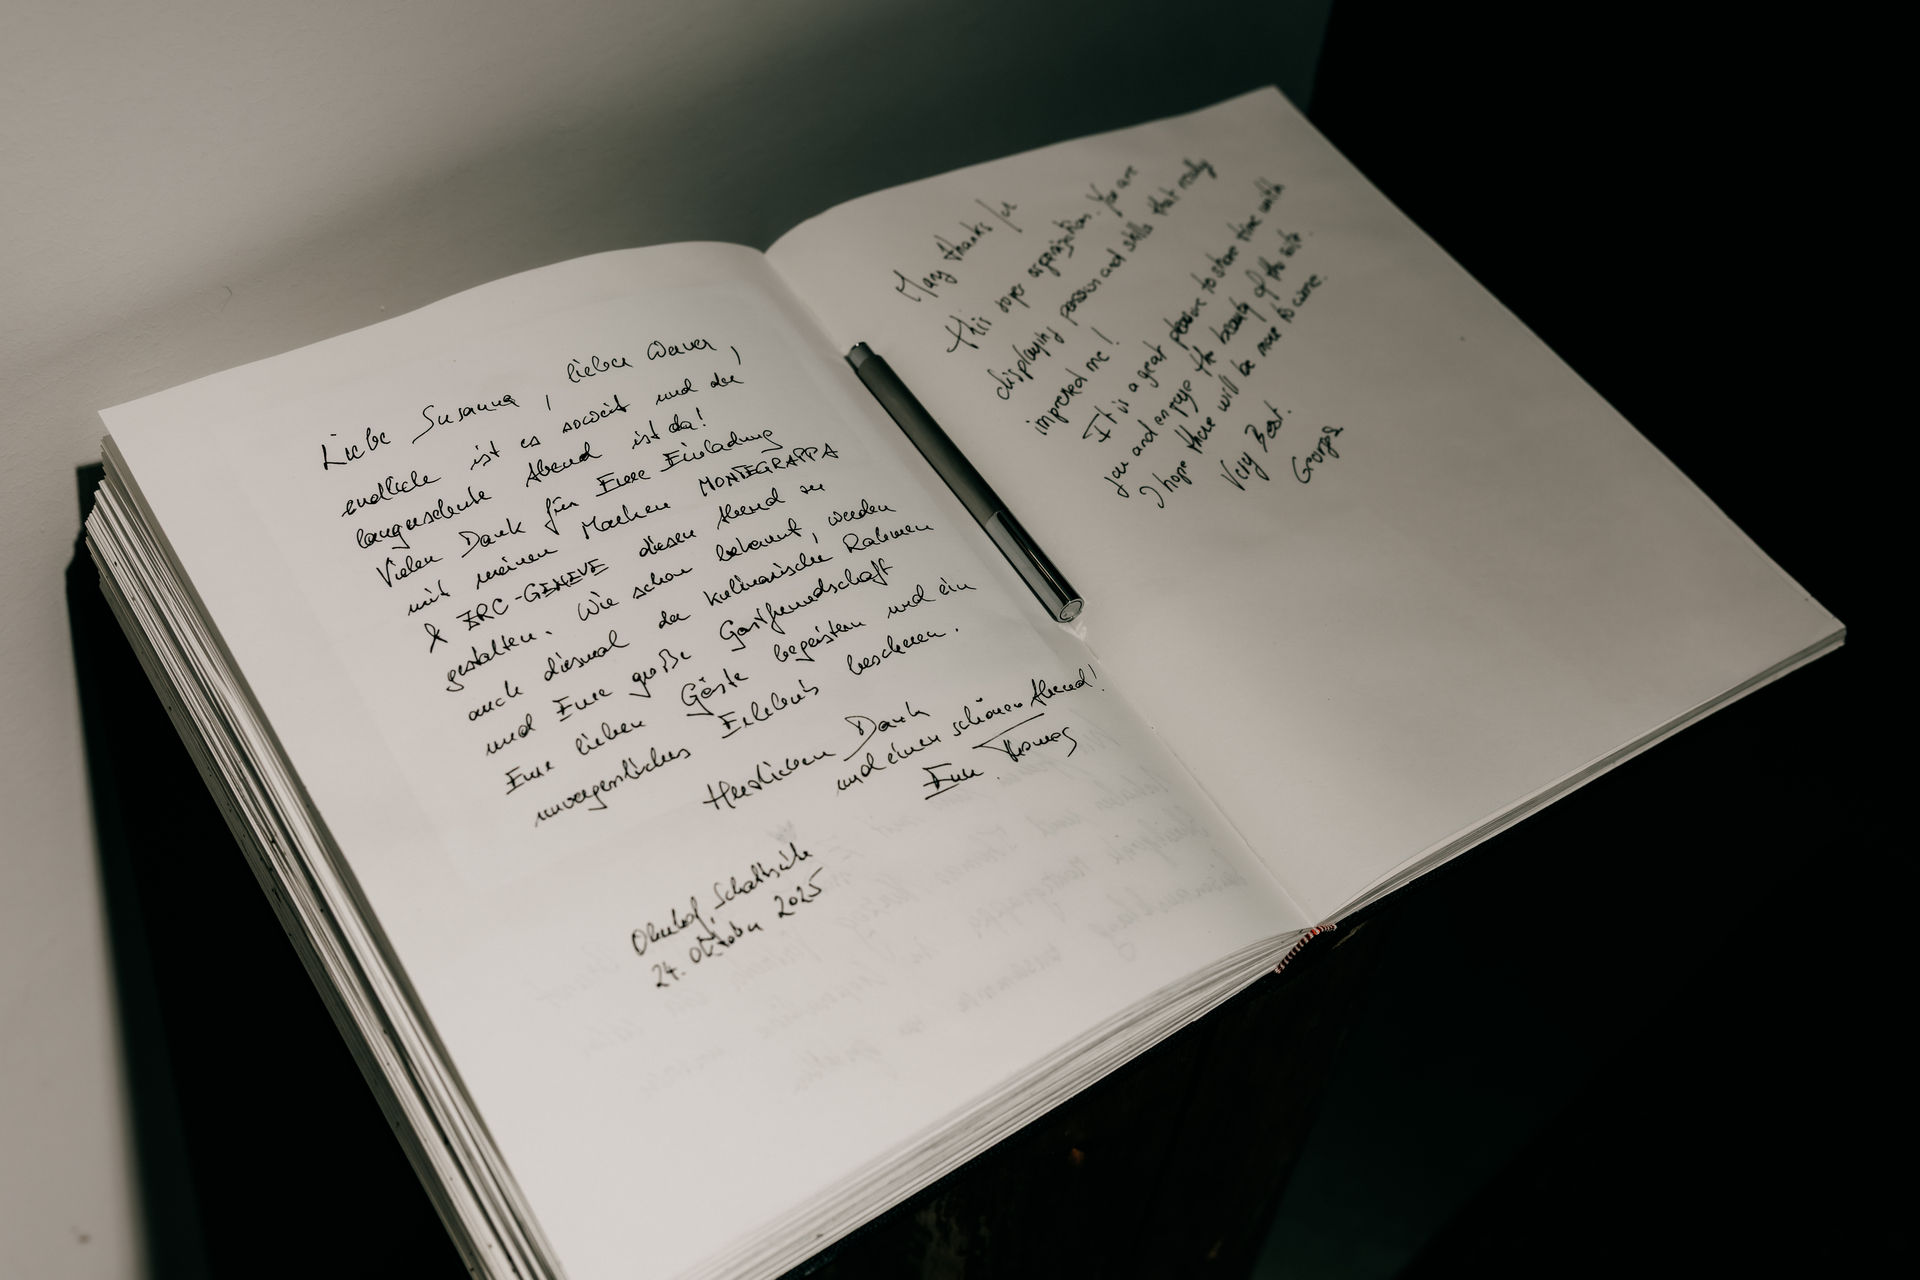 Liebe Susanna, lieber Werner,
endlich ist es soweit und der
langersehnte Abend ist da!
Vielen Dank für Eure Einladung
mit meinen Marken MONTEGRAPPA
& ERC-GENEVE diesen Abend zu
gestalten. Wie schon bekannt, werden
auch diesmal der kulinarische Rahmen
und Eure große Gastfreundschaft
Eure lieben Gäste begeistern und ein
unvergessliches Erlebnis bescheren.
Herzlichen Dank
und einen schönen Abend!
Euer Thomas
24. Oktober 2025
Many thanks for
this super organization. You are
displaying passion and skills that really
impressed me!
It is a great pleasure to share time with
you and enjoy the beauty of the site.
I hope there will be more to come.
Very Best.
Georges